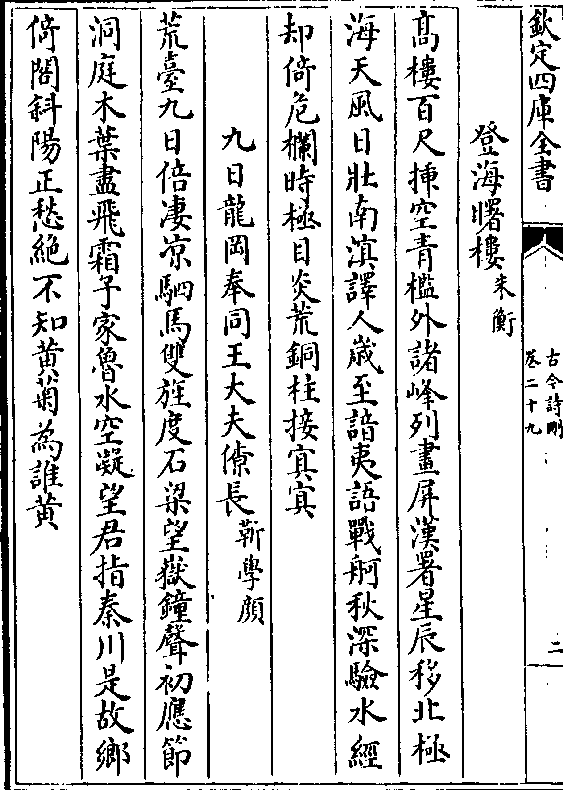 欽定四庫全書
古今詩刪
卷二十九
二
登海曙樓朱衡
高樓百尺揷空青檻外諸峰列畫屏漢署星辰移北極
海天風日壯南滇譯人歲至諳夷語戰舸秋深驗水經
却倚危欄時極目炎荒銅柱接冥冥
九日龍岡奉同王大夫僚長靳學顔
荒臺九日倍凄凉駟馬雙旌度石梁望嶽鐘聲初應節
洞庭木葉盡飛霜子家魯水空凝望君指秦川是故鄉
倚閣斜陽正愁絶不知黄菊為誰黄